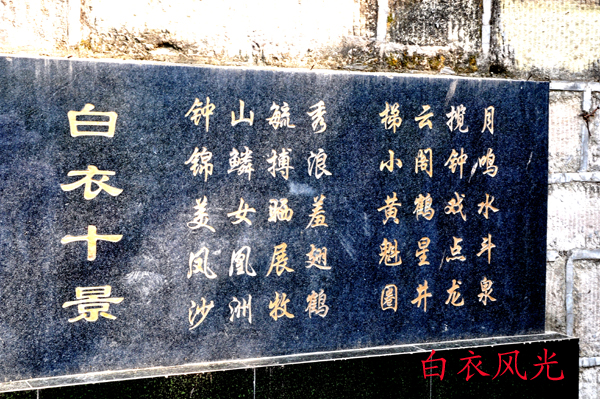 白衣十景
钟山毓秀
锦鳞搏浪
美女晒羞
凤凰展翅
沙洲牧鹤
梯云揽月
小阁钟鸣
黄鹤戏水
魁星点斗
圆井龙泉
白衣风光